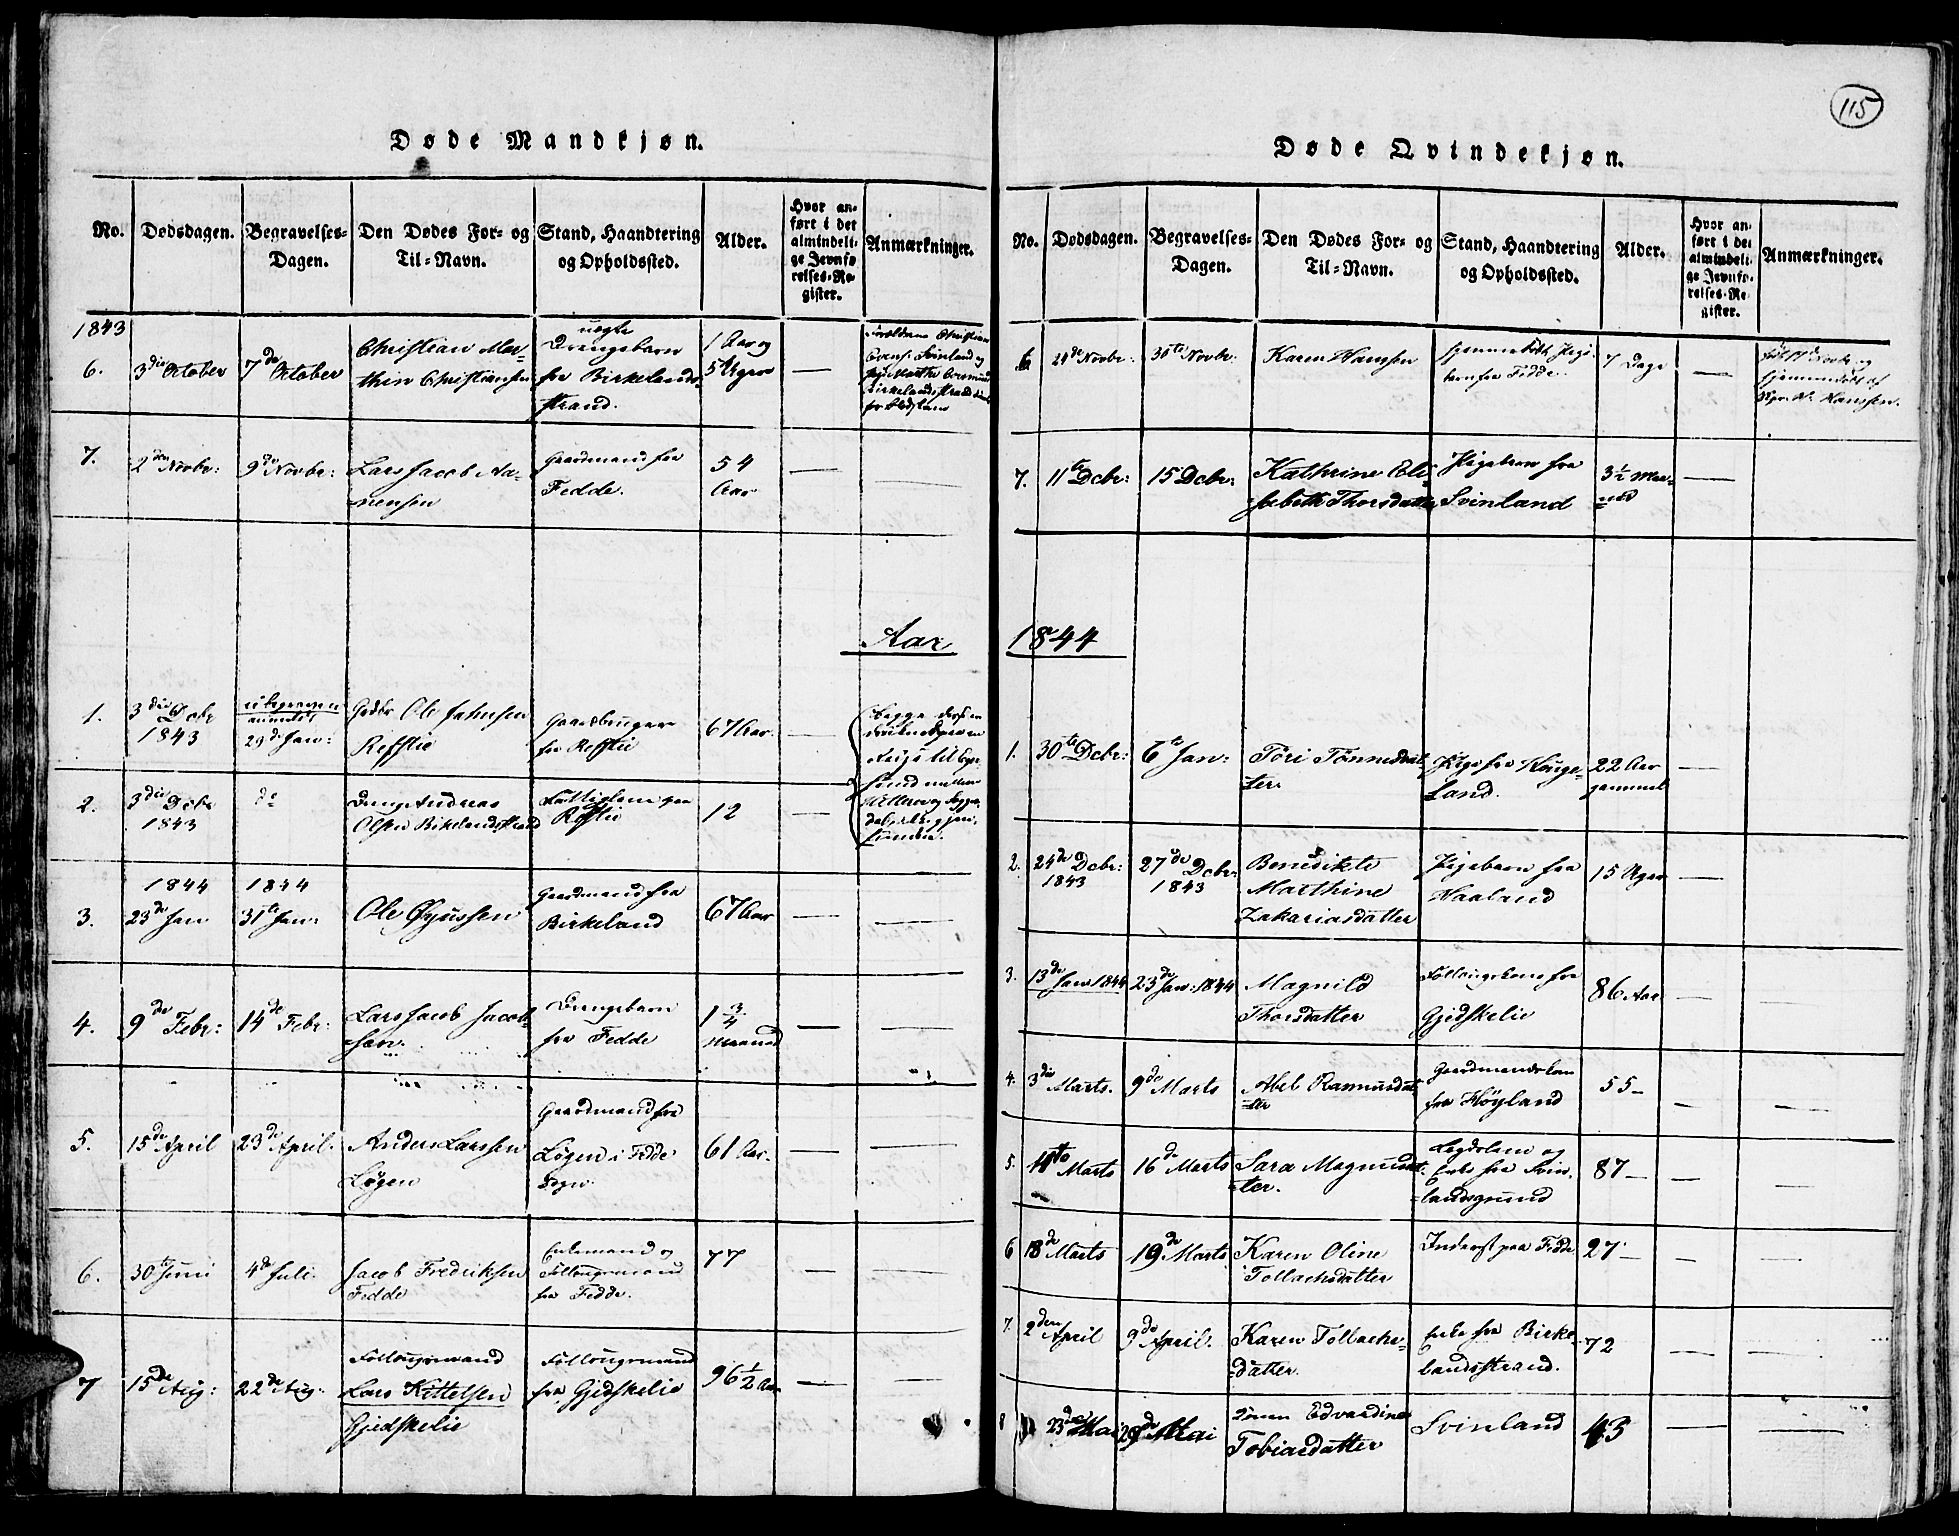 115
Døde Mandkjøn.
No.
Dødsdagen.
Begravelses-
Dagen.
Den Dødes For- og
Til-Navn.
Stand, Haandtering
og Opholdssted.
Alder.
Hvor an-
ført i det
almindeli-
ge Jevnfø-
relses-Re-
gister.
Anmærkninger.
1843
6.
3die October
7de October
Christian Mar-
thin Christiansen
uægte
Drengebarn
fra Birkelands
strand.
1 Aar og
5 Uger
—
Forældrene Christian
Svinland og
Birkelandsstrand
7.
2den Novbr:
9de Novbr:
Lars Jacob Aa-
nensen
Gaardmand fra
Fedde.
54
Aar
—
Aar
1.
3die Dcbr
1843
ei begraven
anmeldt
29de Jan:
Gdbr Ole Johnsen
Refstie
Gaardbruger
fra Refstie
67 Aar.
—
begge disse
2.
3die Dcbr
1843
do
Dreng Andreas
Olsen Birkelandsstrand
Refstie
12
—
3.
1844
23de Jan
1844
31te Jan:
Ole Gjussen
Gaardmand fra
Birkeland
67 Aar
—
—
4.
9de Febr:
14de Febr:
Lars Jacob Jacob-
sen.
Drengebarn
fra Fedde
1 3/4
Maaned
—
—
5.
15de April
23de April.
Anders Larssen
Løgen
Gaardmand fra
Løgen i Fedde
Sogn.
61 Aar.
—
—
6.
30te Juni
4de Juli.
Jacob Fredriksen
Fedde
Enkemand og
Føllougsmand
fra Fedde.
77
—
—
7
15de Aug:
22de Aug:
Føllougsmand
Lars Kittelsen
Gjedskelie
Føllougsmand
fra Gjedskelie
96 1/2 Aar
—
—
Døde Qvindekjøn.
No.
Dødsdagen.
Begravelses-
Dagen.
Den Dødes For- og
Til-Navn.
Stand, Haandtering
og Opholdssted.
Alder.
Hvor an-
ført i det
almindeli-
ge Jevnfø-
relses-Re-
gister.
Anmærkninger.
6
24de Novbr:
30te Novbr:
Karen Hanssen
hjemmedøbt Pige-
barn fra Fedde.
7 Dage
—
født 17de Novbr og
hjemmedøbt af
Hanssen.
7.
11te Dcbr:
15 Dcbr:
Kathrine Eli-
sebeth Thorsdatter
Pigebarn fra
Svinland
3 1/2 Maa-
ned
—
1844
1.
30te Dcbr:
6te Jan:
Tori Tønnesdat-
ter.
Pige fra Kouge-
land.
22 Aar
gammel
—
2.
24de Dcbr:
1843
27de Dcbr:
1843
Benedikte
Marthine
Zakariasdatter
Pigebarn fra
Haaland
15 Uger
—
3.
13de Jan: 1844
23de Jan: 1844
Magnild
Thorsdatter
Føllougskone fra
Gjedskelie
86 Aar
—
—
4.
3die Marts.
9de Marts
Abel Rasmusdat-
ter
Gaardmandskone
fra Høyland
55 —
—
—
5.
11te Marts
16de Marts
Sara Magnusdat-
ter.
Lægdslem og
Enke fra Svin-
landsgrund
87 —
—
—
6
18de Marts
19de Marts
Karen Oline
Tollachsdatter
Inderst paa Fedde
27 —
—
—
7.
2den April
9de April.
Karen Tollachs-
datter.
Enke fra Birke-
landsstrand.
72
—
—
8
23de Mai
28de Mai
Edvardine
Tobiasdatter
Svinland
43
—
—